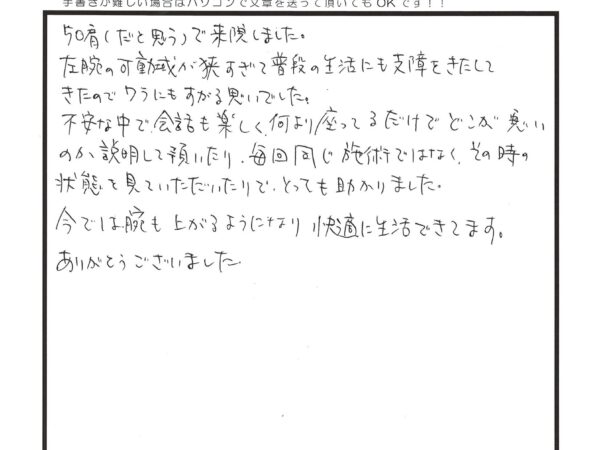 手書きが難しい場合はパソコンで文章を送って頂いてもOKです！！
50肩(だと思う)で来院しました。
左腕の可動域が狭すぎて普段の生活にも支障をきたして
きたのでワラにもすがる思いでした。
不安な中で、会話も楽しく、何より座ってるだけでどこが悪い
のか説明して頂いたり、毎回同じ施術ではなく、その時の
状態を見ていただいたりで、とっても助かりました。
今では腕も上がるようになり快適に生活できてます。
ありがとうございました